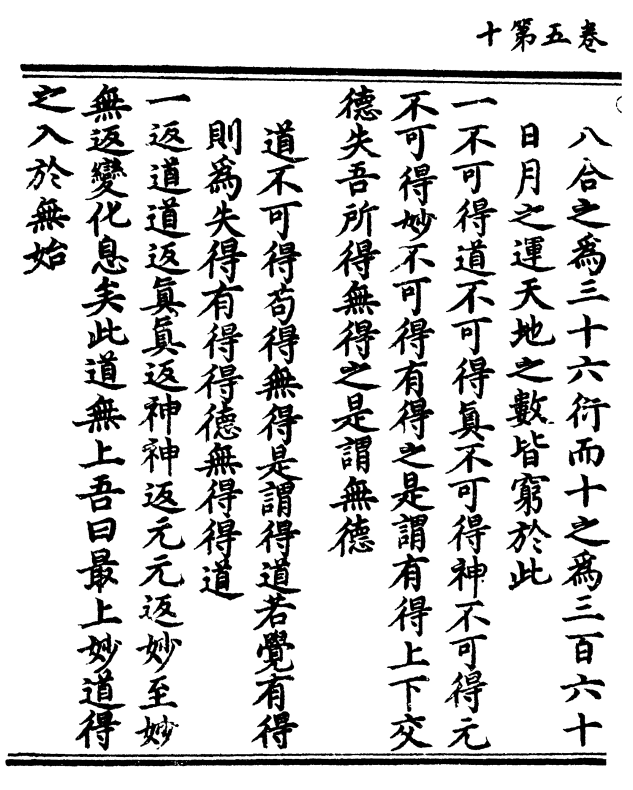 卷五第十
八合之爲三十六衍而十之爲三百六十
日月之運天地之數皆窮於此
一不可得道不可得眞不可得神不可得元
不可得妙不可得有得之是謂有得上下交
德失吾所得無得之是謂無德
道不可得苟得無得是謂得道若覺有得
則爲失得有得得德無得得道
一返道道返眞眞返神神返元元返妙至妙
無返變化息矣此道無上吾曰最上妙道得
之入於無始